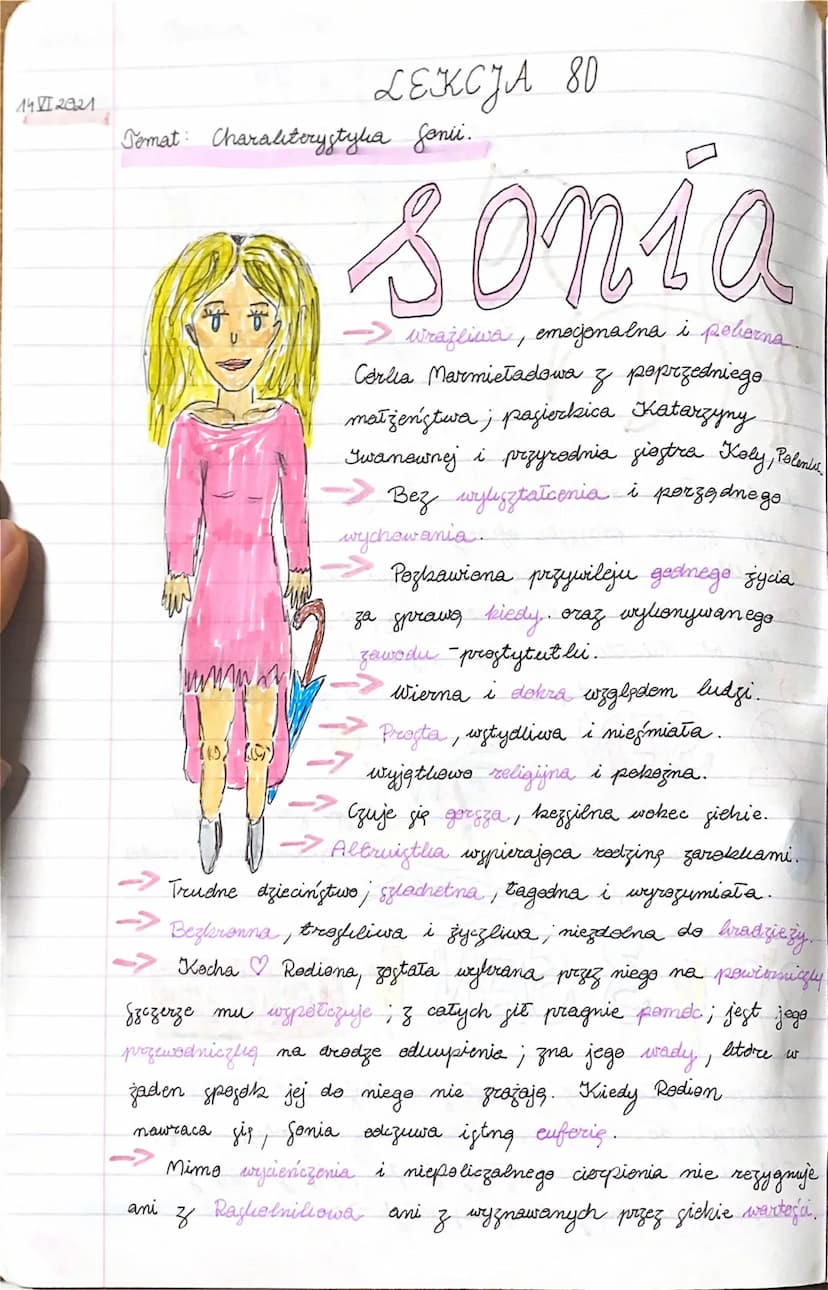 LEKCJA 80
14 VI 2021
Temat: Charakterystyka Sonii.
Sonia
→ Wrażliwa, emocjonalna i pokorna.
Córka Marmieładowa z poprzedniego
małżeństwa; pasierbica Katarzyny
Iwanownej i przyrodnia siostra Koly, Polenki.
→ Bez wykształcenia i porządnego
wychowania.
→ Pozbawiona przywileju godnego życia
za sprawą biedy. oraz wykonywanego
zawodu - prostytutki.
→ Wierna i dobra względem ludzi.
→ Prosta, wstydliwa i nieśmiała.
→ Wyjątkowo religijna i pobożna.
→ Czuje się gorsza, bezsilna wobec siebie.
→ Altruistka wspierająca rodzinę zarobkami.
→ Trudne dzieciństwo; szlachetna, łagodna i wyrozumiała.
→ Bezbronna, troskliwa i życzliwa; niezdolna do kradzieży.
→ Kocha ♡ Rodiona, została wybrana przez niego na powierniczkę
Szczerze mu współczuje; z całych sił pragnie pomóc; jest jego
przewodniczką na drodze odkupienia; zna jego wady, które w
żaden sposób jej do niego nie zrażają. Kiedy Rodion
nawraca się, Sonia odczuwa istną euforię.
→ Mimo wycieńczenia i niepoliczalnego cierpienia nie rezygnuje
ani z Raskolnikowa ani z wyznawanych przez siebie wartości.